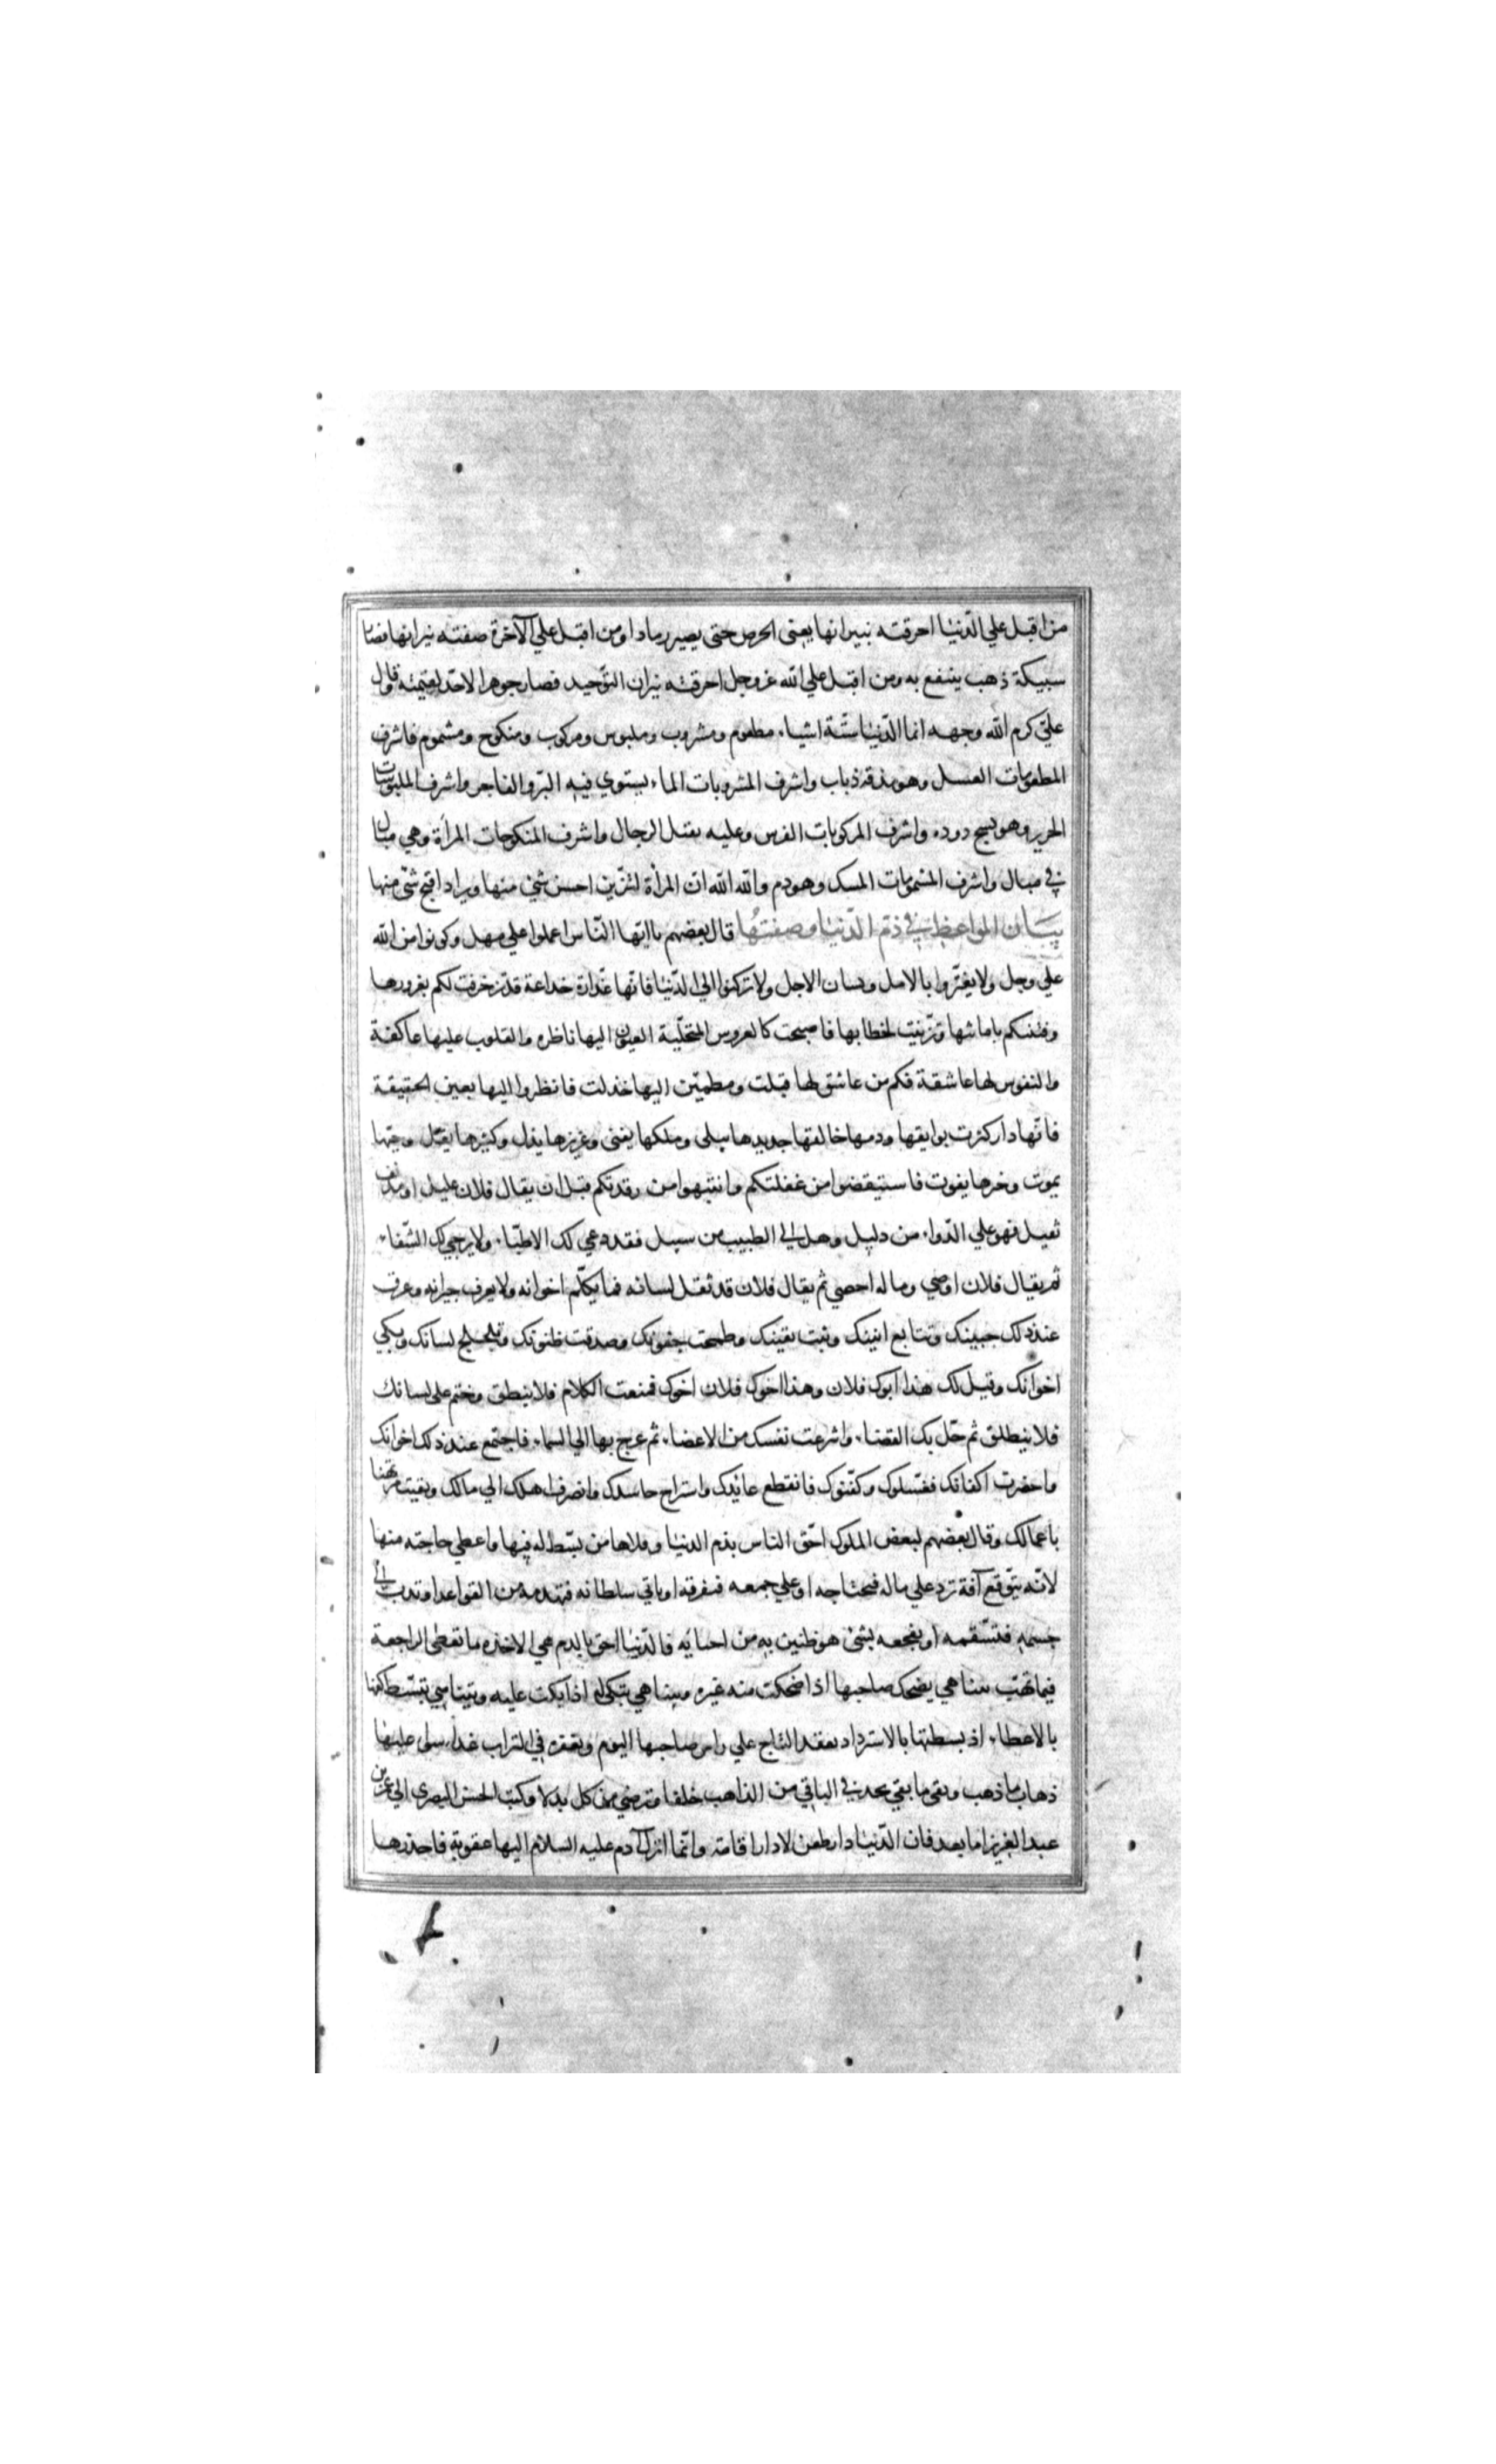 من اقبل علي الدّنيا احرقته نيرانها يعنى الحرص حتى يصير رمادا ومن اقبل علي الآخرة صفته نيرانها فصار
سبيكة ذهب ينتفع به ومن اقبل علي الله عزوجل احرقته نيران التّوحيد فصار جوهرا لاحدّ لقيمته وقال
علىّ كرم الله وجهه انما الدّنيا ستّة اشياء مطعوم ومشروب وملبوس ومركوب ومنكوح ومشموم فاشرف
المطعومات العسل وهو مذقة ذباب واشرف المشروبات الماء يستوي فيه البرّ والفاجر واشرف الملبوسات
الحرير وهو نسج دوده واشرف المركوبات الفرس وعليه يقتل الرجال واشرف المنكوحات المرأة وهي مبال
في مبال واشرف المشمومات المسك وهو دم والله الله ان المرأة لتزين احسن شئ منها ويراد اقبح شئ منها
بيان المواعظ في ذمّ الدّنيا وصفتها قال بعضهم ياايّها النّاس اعملوا علي مهل وكونوا من الله
علي وجل ولا يغترّوا بالامل ونسان الاجل ولا تركنوا الي الدّنيا فانّها غدّارة خداعة قد تزخرفت لكم بغرورها
وفتنتكم باماٮٮها وتزّينت لخطابها فاصبحت كالعروس المتحلّية العيون اليها ناظره والقلوب عليها عاكفة
والنفوس لها عاشقة فكم من عاشق لها قتلت ومطمئن اليها خذلت فانظروا اليها بعين الحقيقة
فانّها دار كثرت بوايقها وذمها خالقها جديدها يبلى وملكها يفنى وعزيزها يذل وكثيرها يقل وحيّها
يموت وخيرها يفوت فاستيقضوا من غفلتكم وانتبهوا من رقدتكم قبل ان يقال فلان عليل او مدنف
ثقيل فهو علي الدّواء من دليل وهل الي الطبيب من سبيل فقد دعي لك الاطبّاء ولا يرجي لك الشّفاء
ثم يقال فلان اوصي وماله احصي ثم يقال فلان قد ثقل لسانه فما يكلّم اخوانه ولا يعرف جيرانه وعرق
عند ذلك جبينك وتتابع انينك وثبت يقينك وطمحت جفونك وصدقت ظنونك وتلجلج لسانك وبكي
اخوانك وقيل لك هذا ابوك فلان وهذا اخوك فلان اخوك فمنعت الكلام فلا ينطق وختم على لسانك
فلا ينطلق ثم حّل بك القضاء واشرعت نفسك من الاعضاء ثم عرج بها الي السماء فاجتمع عند ذلك اخوانك
واحضرت اكفانك فغسّلوك وكفّنوك فانقطع عائدك واستراح حاسدك وانصرف اهلك الي مالك وبقيت مرتهنا
باعمالك وقال بعضهم لبعض الملوك احّق الناس بذم الدنيا وقلاها من بسّط له فيها واعطي حاجته منها
لانّه يتّوقع آفة ترد علي ماله فتحتاجه او علي جمعه فتفرقه او ياتي سلطانه فتهدمه من القواعد او تدب الي
جسمه فتسّقمه او يفجعه بشئ هو ظنين به من احبائه فالدّنيا احق بالدم هي الاخذه ما تعطى الراجعة
فيما تهّب بينا هي يضحك صاحبها اذا ضحكت منه غيره وبينا هي تبكي له اذا بكت عليه وبينا هي تبسّط كفها
بالاعطاء اذ بسطتها بالاسترداد يعقد التاج علي راس صاحبها اليوم ويعفره في التراب غداً سوى عليها
ذهاب ما ذهب وبقي ما بقي يحد في الباقي من الذاهب خلفا وترضي من كل بدلا وكتب الحسن البصرى الي عمر بن
عبد العزيز اما بعد فان الدّنيا دار ظعن لا دار اقامة وانّما انزل آدم عليه السلام اليها عقوبة فاحذرها